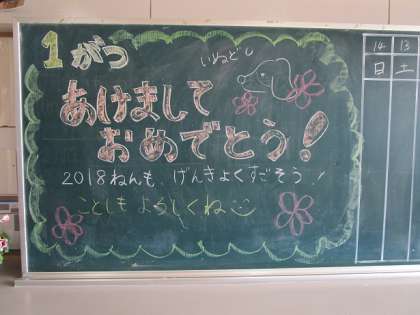 1がつ
いぬどし
あけまして
おめでとう!
2018ねんも、げんきよくすごそう!
ことしも よろしくね
14 13
日 土